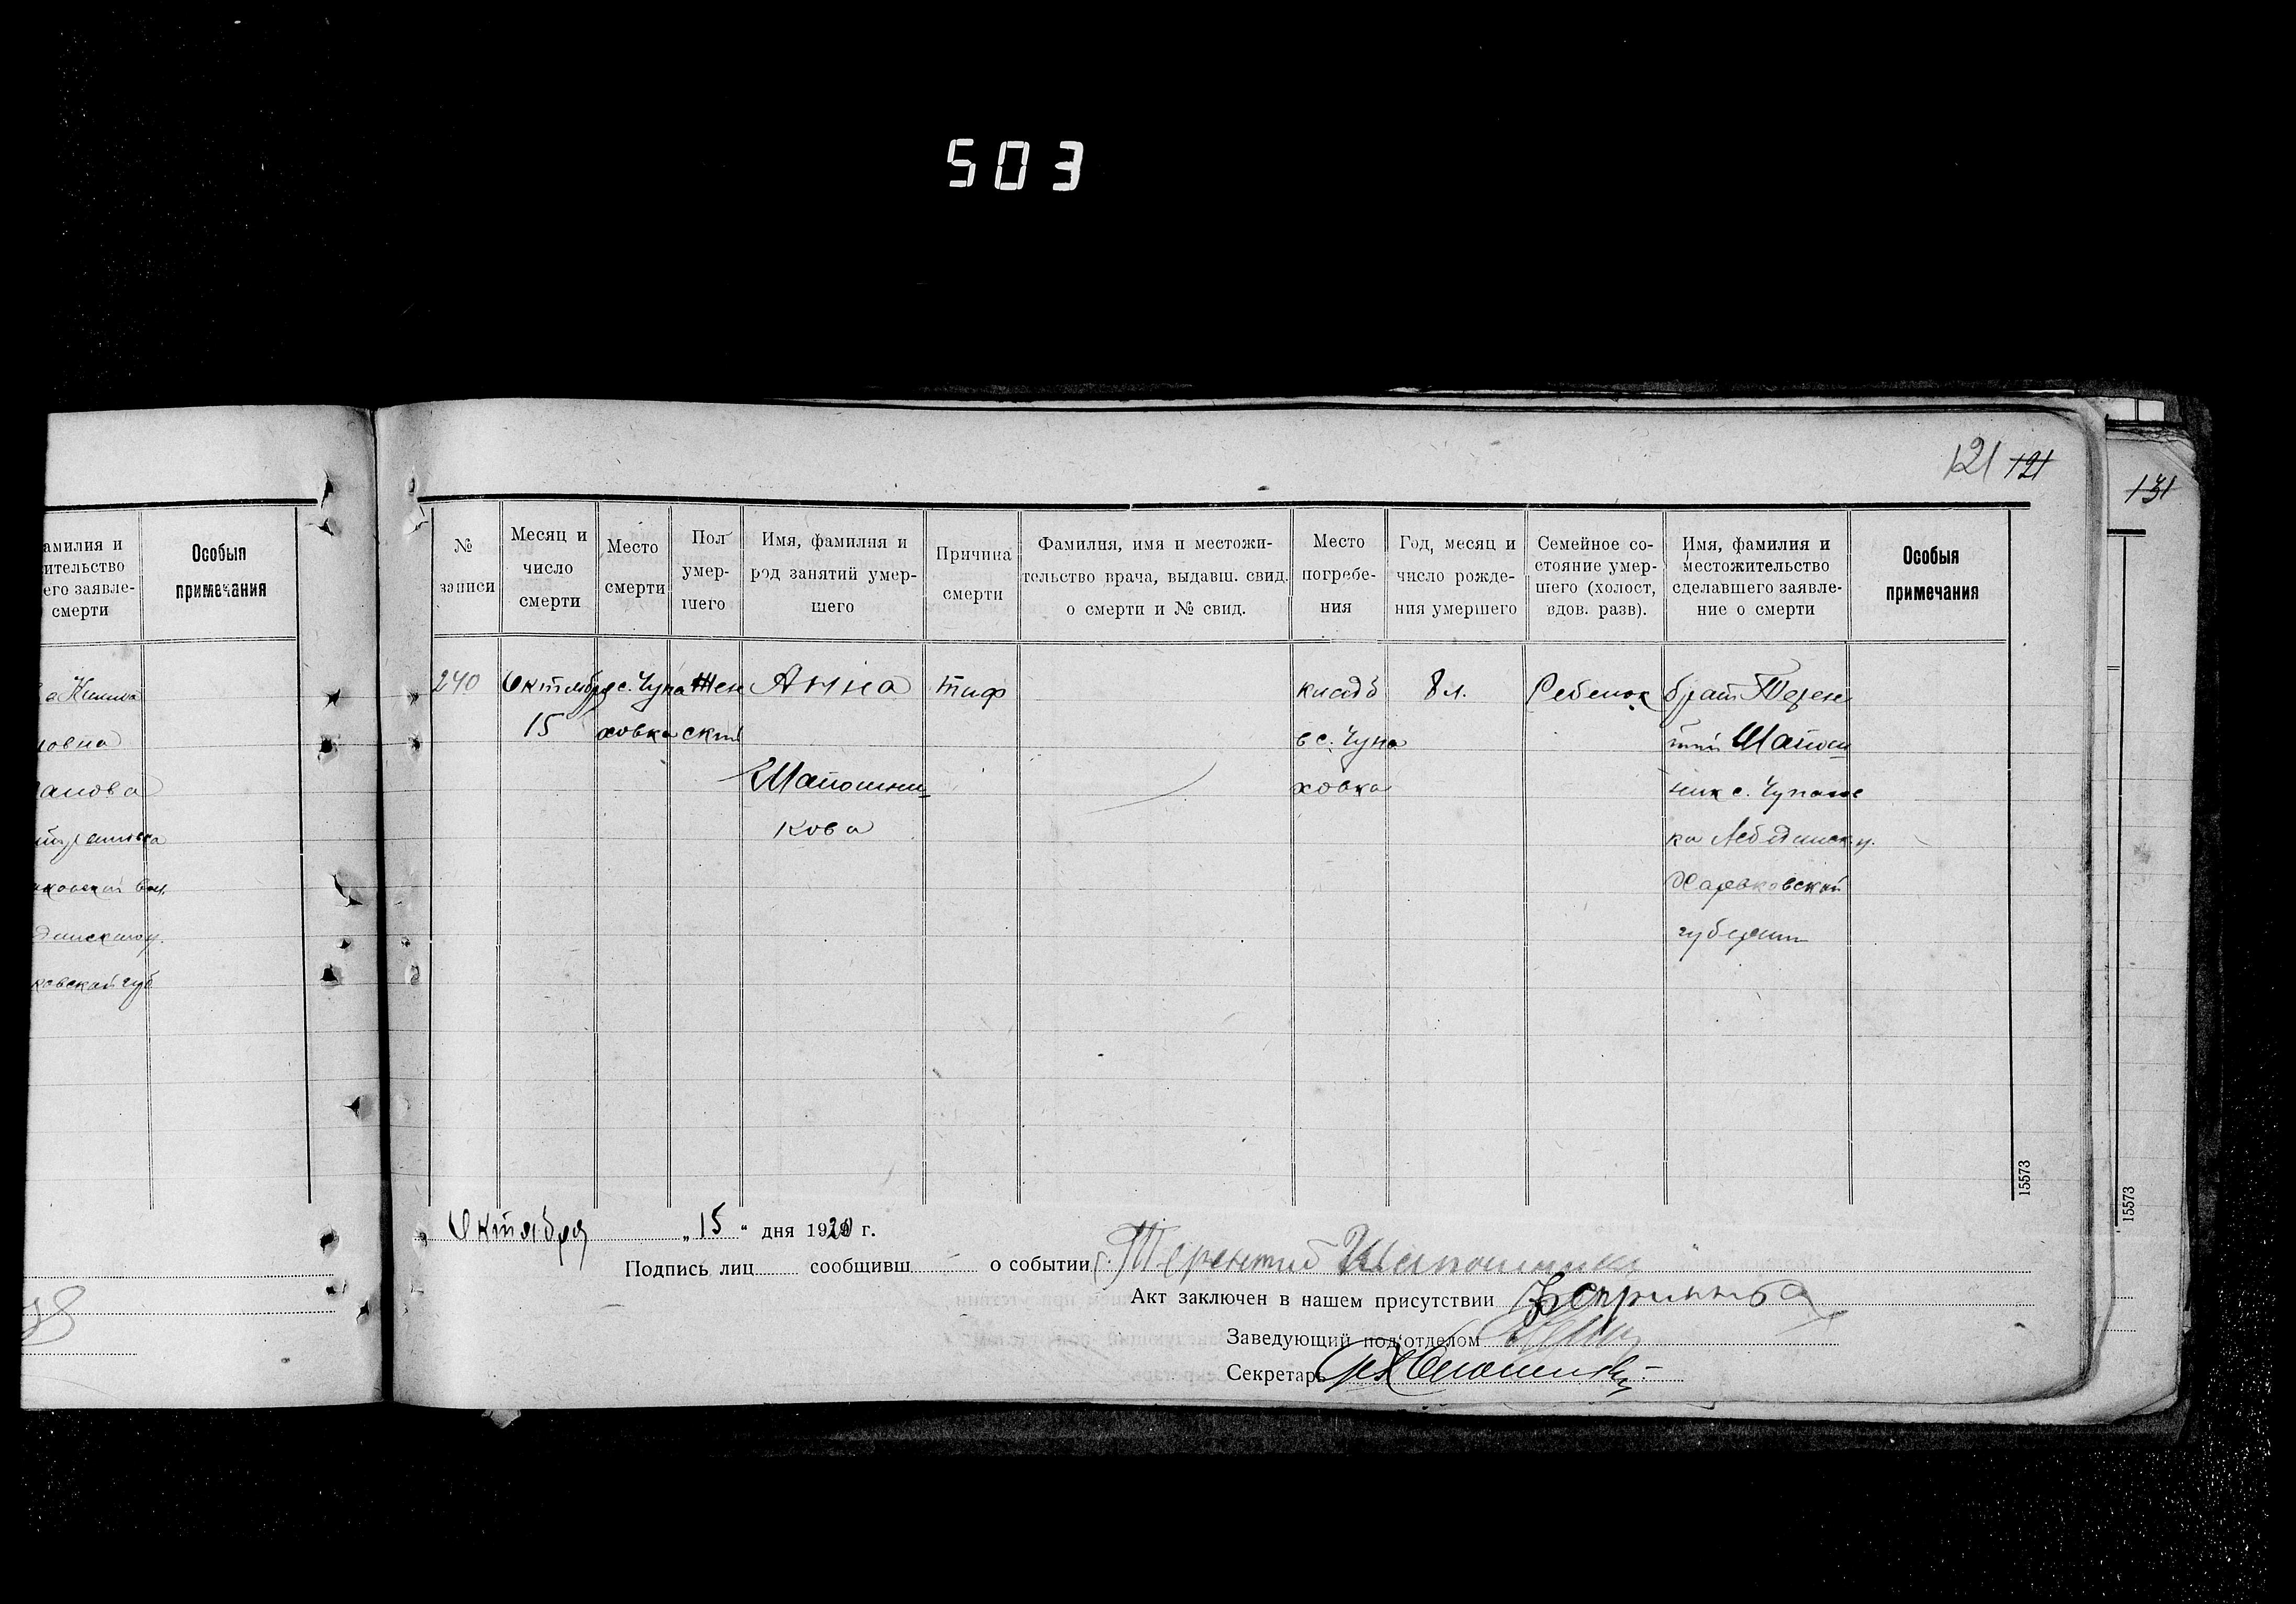 503
121 121
131
амилия и
ительство
его заявле-
смерти
Особыя
примечания
а Никила
ловна
анова
ковской вол.
динского у.
ковской губ
№
записи
Месяц и
число
смерти
Место
смерти
Пол
умер-
шего
Имя, фамилия и
род занятий умер-
шего
Причина
смерти
Фамилия, имя и местожи-
тельство врача, выдавш. свид.
о смерти и № свид.
Место
погребе-
ния
Год, месяц и
число рожде-
ния умершего
Семейное со-
стояние умер-
шего (холост,
вдов. разв).
Имя, фамилия и
местожительство
сделавшего заявле-
ние о смерти
Особыя
примечания
240
Октября
15
с. Чупа
ховка
Жен
ский
Анна
Шапошни-
кова
тиф
кладб
в с. Чупа
ховка
8 л.
Ребенок
брат Терен
тий Шапош-
ник с. Чупахов
ка Лебединск. у.
Харьковской
губернии
15573
15573
Октября „ 15 “ дня 1920 г.
Подпись лиц сообщивш о событии Терентий Шапошник
Акт заключен в нашем присутствии
Заведующий под‘отделом
Секретарь